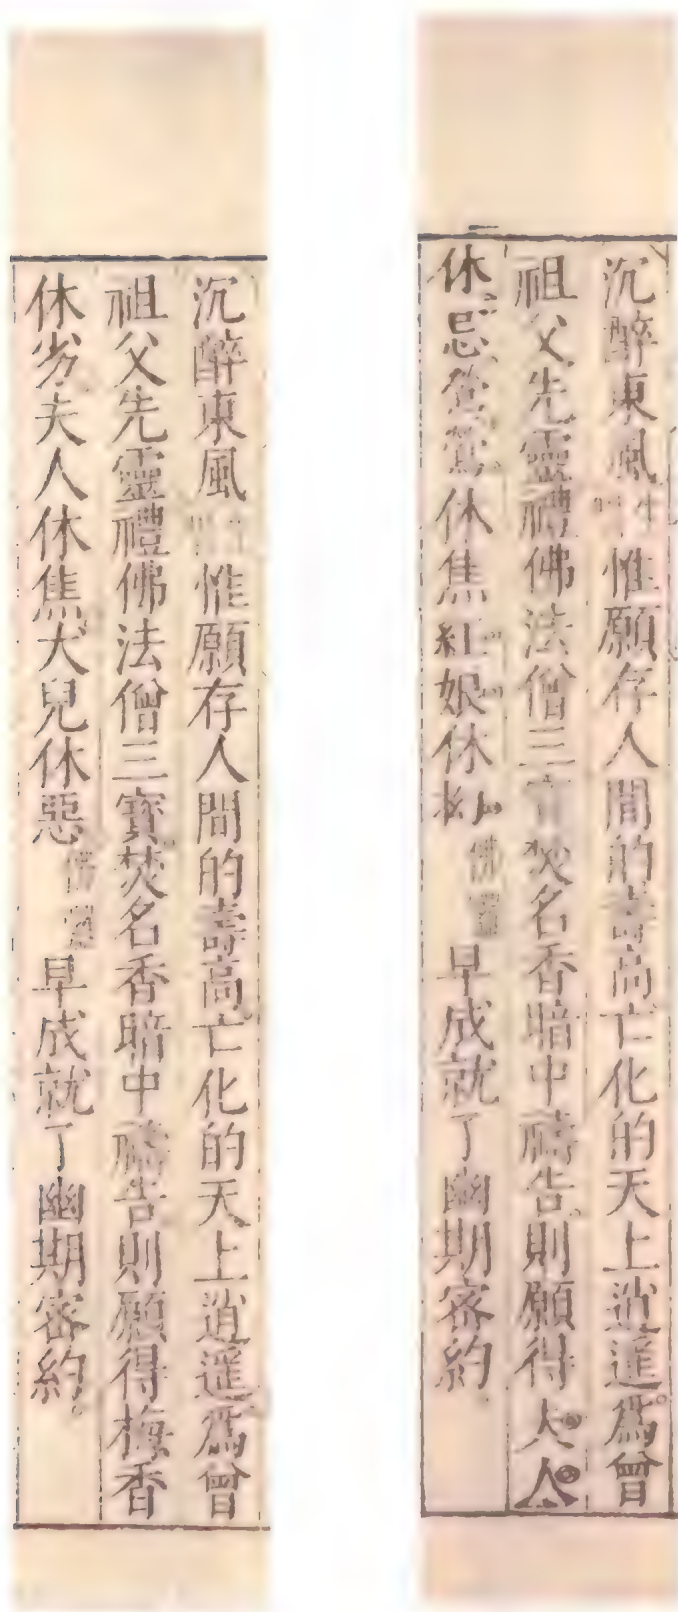 沉醉東風惟願存人間的壽高亡化的天上逍遙爲曾
祖父先靈禮佛法僧三寶焚名香暗中禱告則願得夫人
休忌鶯鶯休焦紅娘休佛囉早成就了幽期密約
沉醉東風惟願存人間的壽高亡化的天上逍遙爲曾
祖父先靈禮佛法僧三寶焚名香暗中禱告則願得梅香
休劣夫人休焦犬兒休惡佛囉早成就了幽期密約。